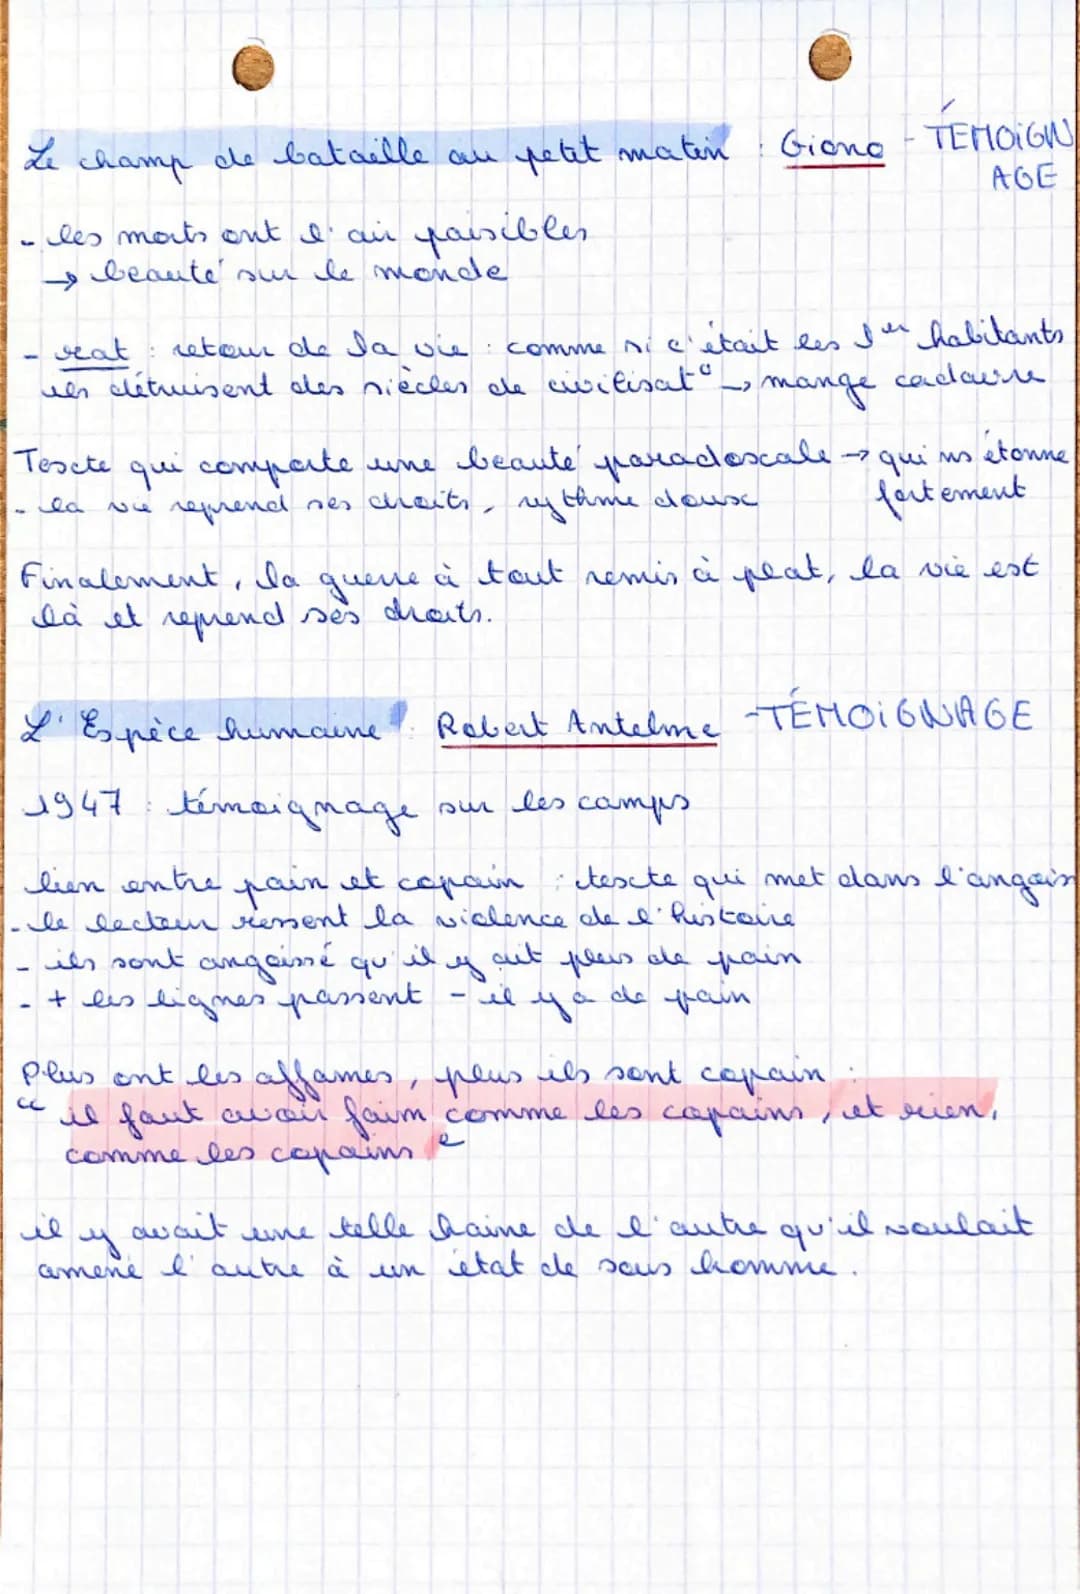 Le champ de bataille au petit matin : Giono - TÉMOIGN
AGE
- les morts ont l'air paisibles
→ beauté sur le monde
- rat : retour de la vie : comme si c'était les 1er habitants
ils détruisent des siècles de civilisat° → mange cadavre
Texte qui comporte une beauté paradoxale → qui ns étonne
fortement
- la vie reprend ses droits, rythme doux
Finalement, la guerre à tout remis à plat, la vie est
là et reprend ses droits.
L'Espèce humaine : Robert Antelme - TÉMOIGNAGE
1947 : témoignage sur les camps
lien entre pain et copain : texte qui met dans l'angois
- le lecteur ressent la violence de l'histoire
- ils sont angoissé qu'il y ait plus de pain
- + les lignes passent - il y a de pain
Plus ont les affames, plus ils sont copain :
" il faut avoir faim comme les copains, et rien,
comme les copains "
il y avait une telle haine de l'autre qu'il voulait
amené l'autre à un état de sous homme.